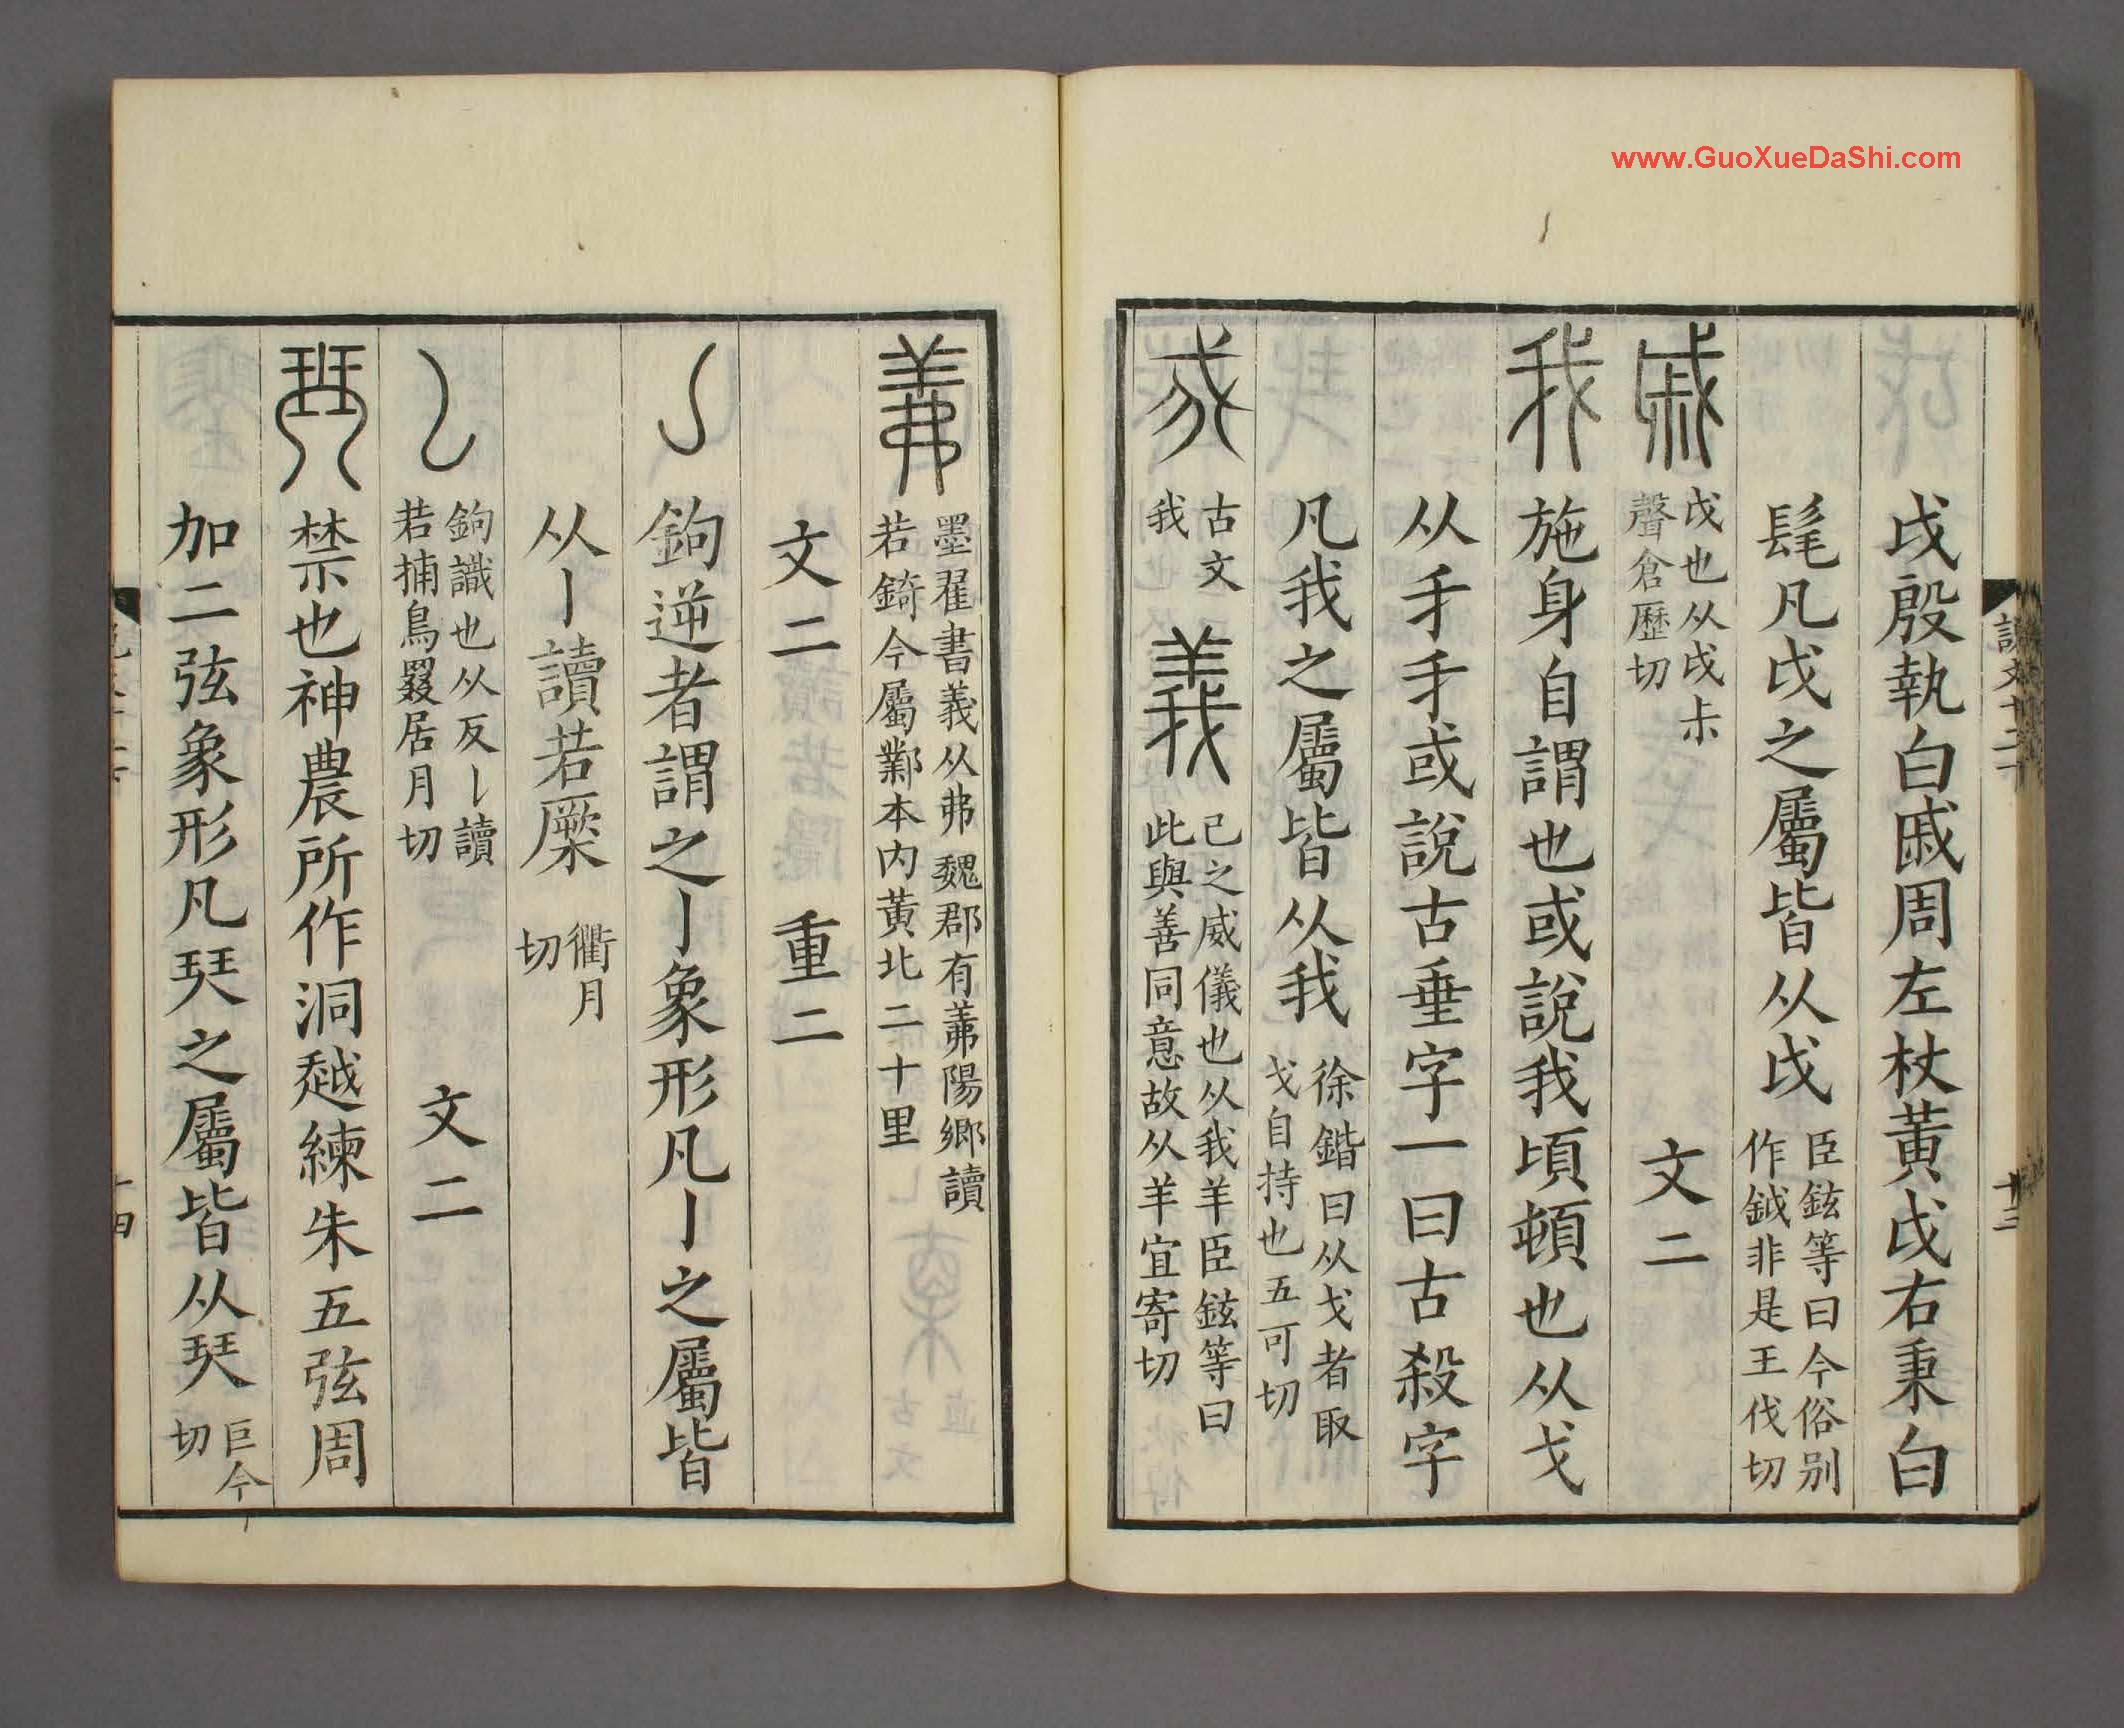 www.GuoXueDaShi.com
戉殷執白戚周左杖黃戉右秉白
髦凡戉之屬皆从戉 臣鉉等曰今俗別作鉞非是王伐切
戚 戉也从戉尗聲倉歷切 文二
我 施身自謂也或說我頃頓也从戈
从𠄒𠄒或說古垂字一曰古殺字
凡我之屬皆从我 徐鍇曰从戈者取戈自持也五可切
𢦠 古文我 義 己之威儀也从我羊臣鉉等曰此與善同意故从羊宜寄切
羛 墨翟書義从弗魏郡有羛陽鄉讀若錡今屬鄴本内黃北二十里
文二 重二
亅 鉤逆者謂之亅象形凡亅之屬皆
从亅讀若橜 衢月切
𠄌 鉤識也从反亅讀若捕鳥罬居月切 文二
琴 禁也神農所作洞越練朱五弦周
加二弦象形凡珡之屬皆从珡 巨今切
十三
十四